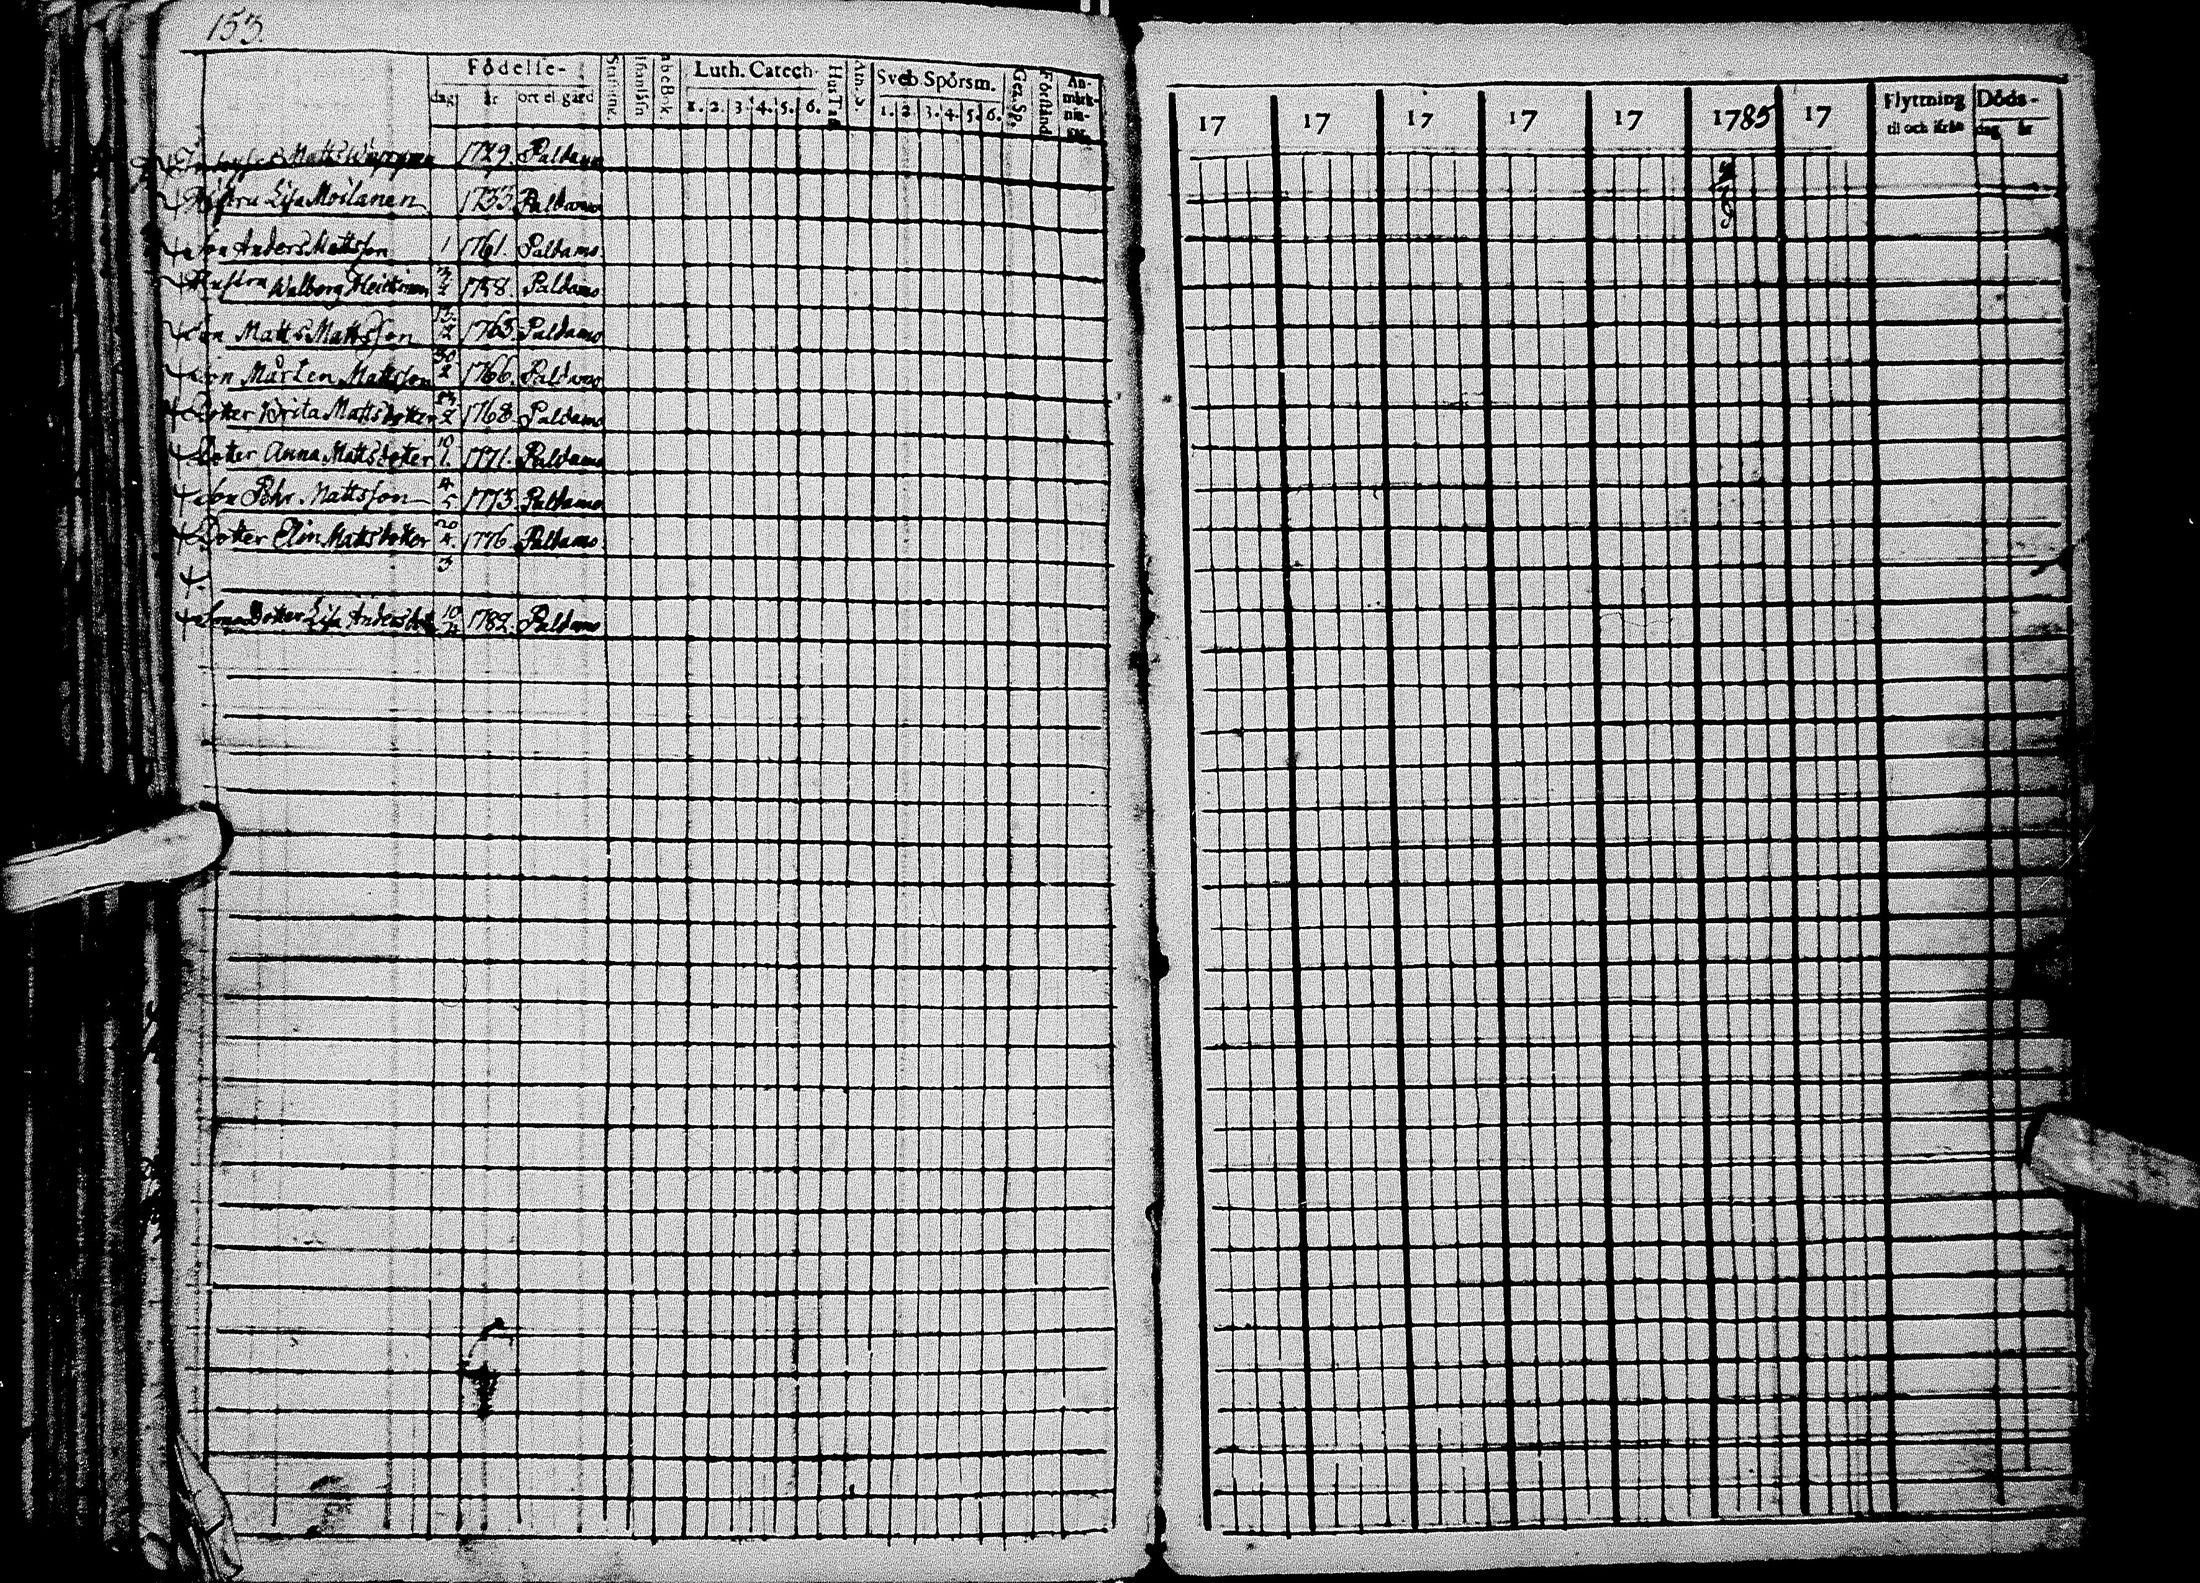 153.
Födelse-
dag år ort el gård
Luth. Catech.
1. 2. 3. 4. 5. 6.
Hus Taf
Sveb. Spörsm.
1. 2. 3. 4. 5. 6.
Förstånd
An-märk-nin-gar
Matts 1729. Paldamo
Hustru Lisa Moilanen 1733 Paldamo
Son Anders Mattsson 1 1761. Paldamo
Hustru Walborg Heickinen 1758. Paldamo
Son Matts Mattsson 1763 Paldamo
Son Mårten Mattsson 1766. Paldamo
Dotter Brita Mattsdotter 1768. Paldamo
Dotter Anna Mattsdotter 10 1. 1771. Paldamo
Son Pehr Mattsson 4 5 1773. Paldamo
Dotter Elin Mattsdotter 20 4. 1776 Paldamo
3
Sonens Dotter Lisa Andersdotter 10 1782. Paldamo
17 17 17 17 17 1785 17
Flyttning til och ifrån
Döds-
dag år